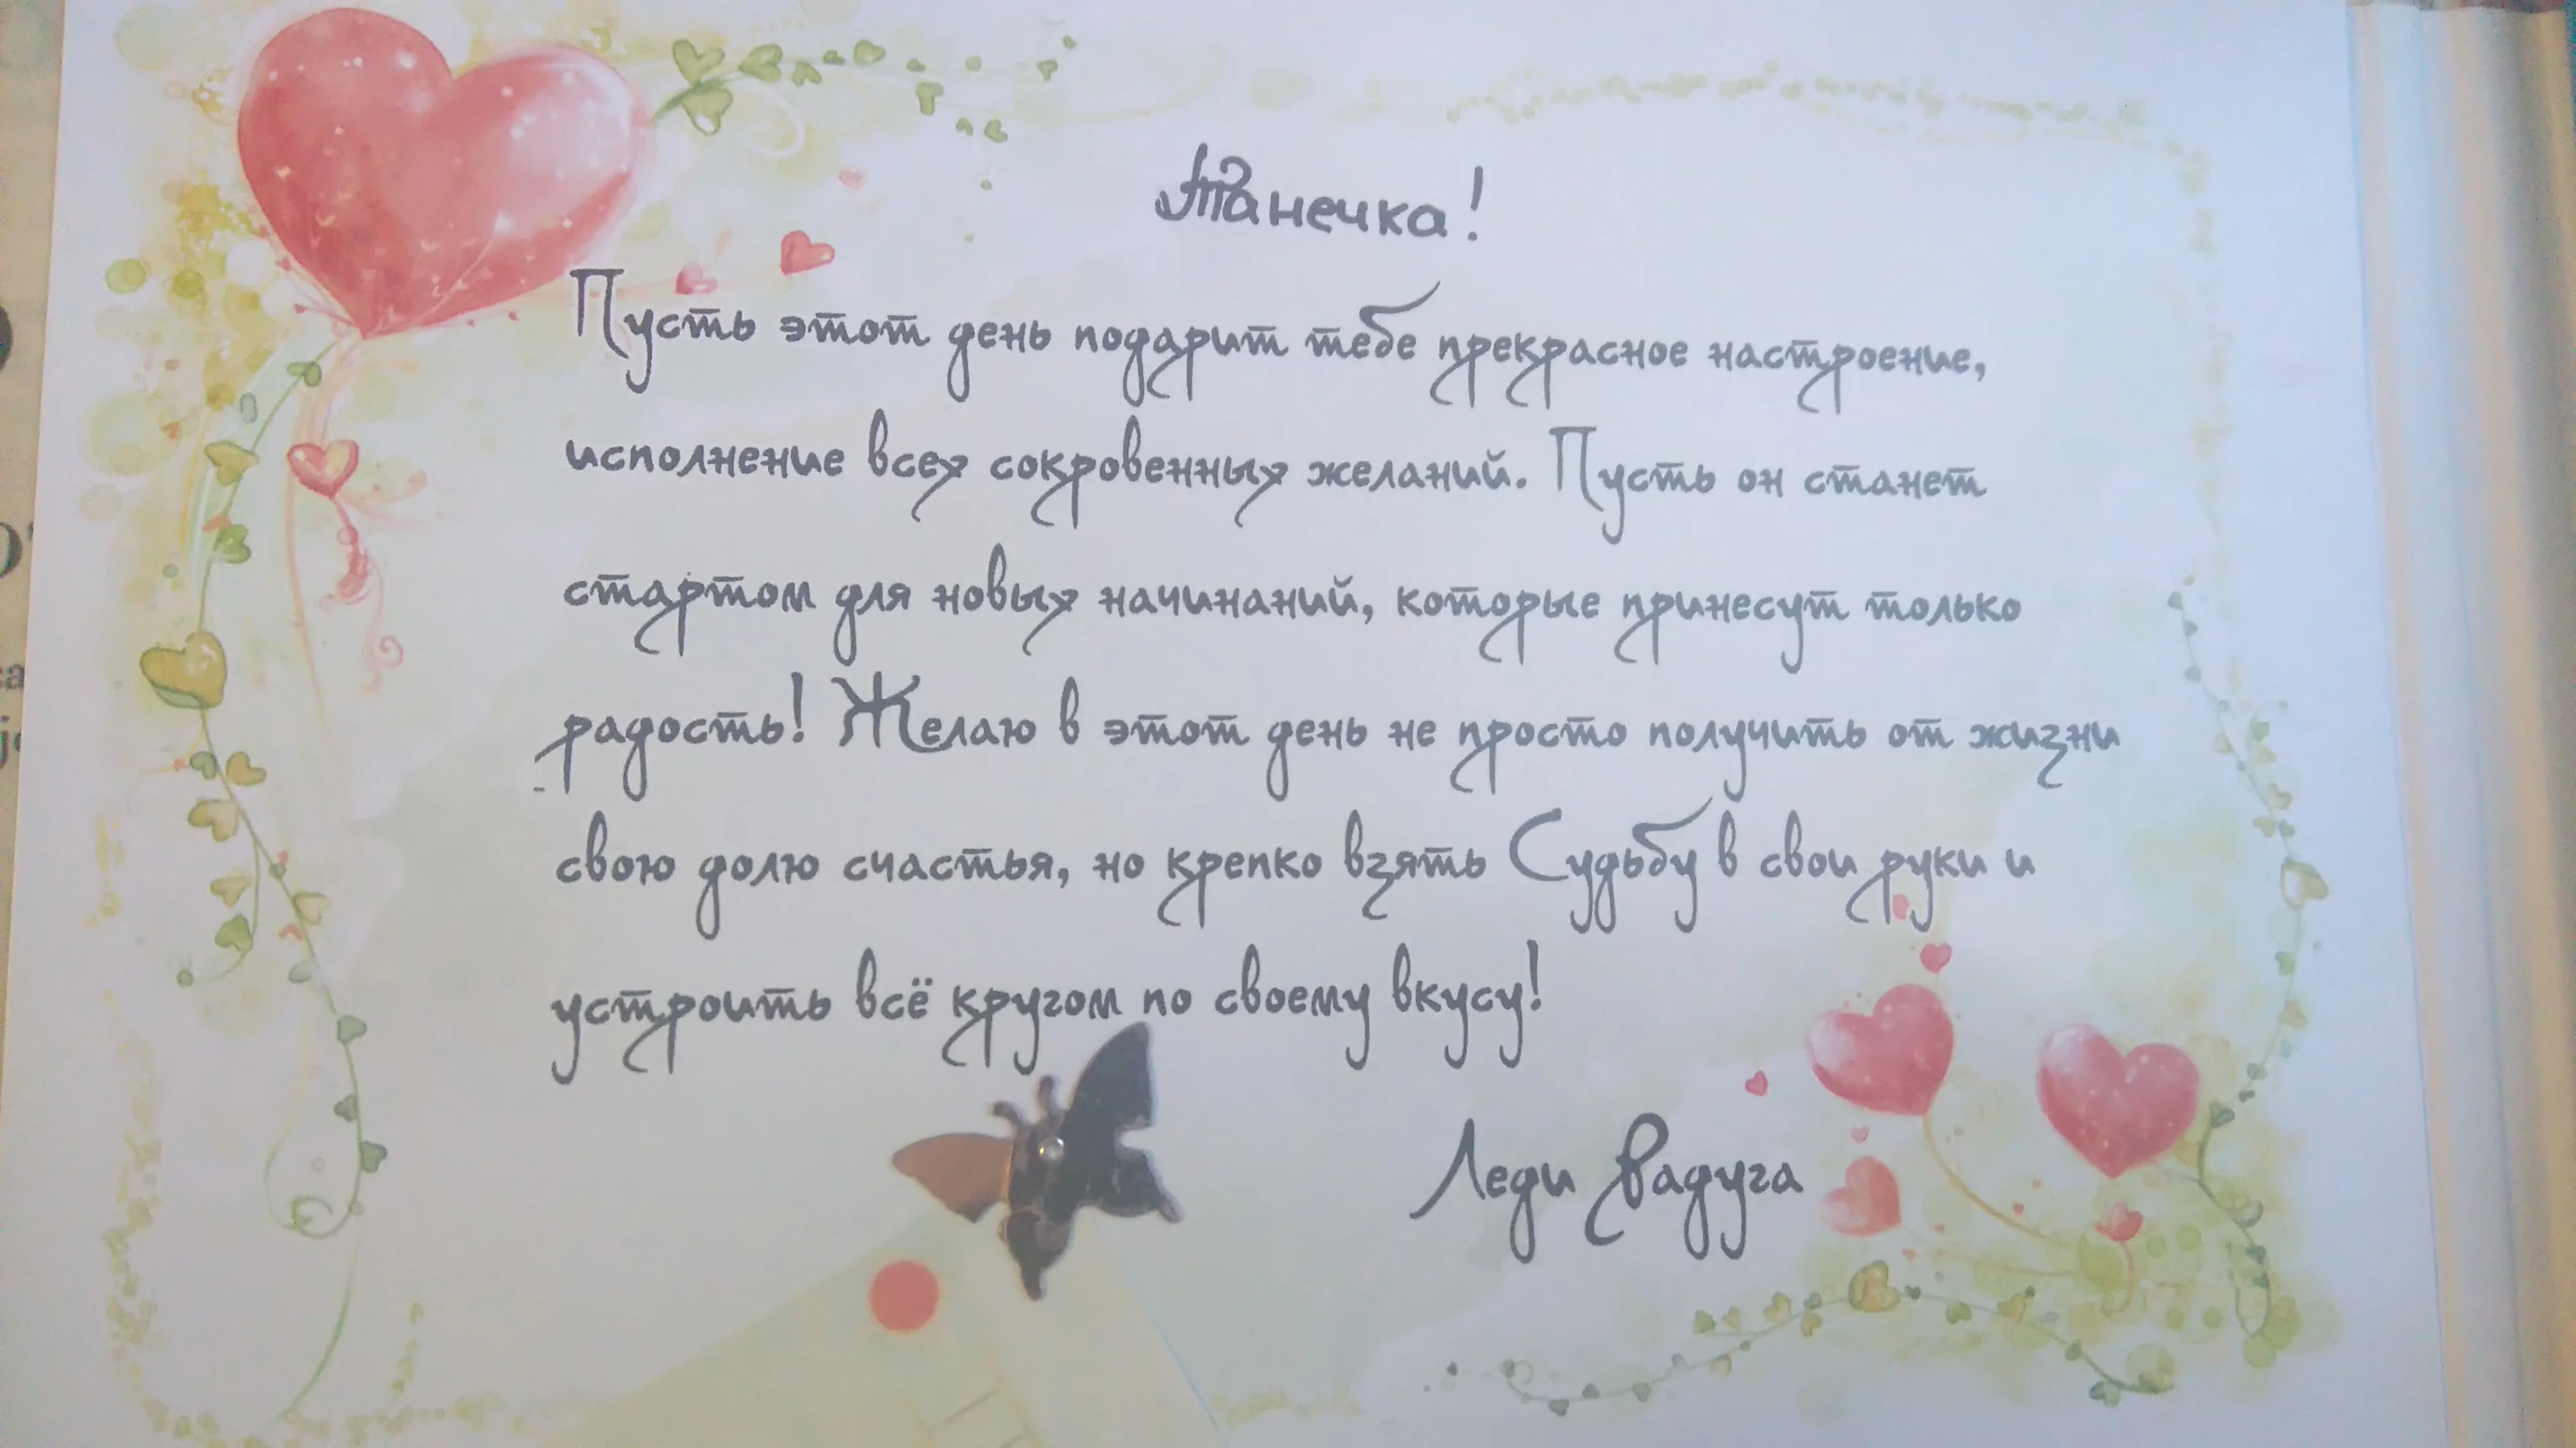 Танечка!
Пусть этот день подарит тебе прекрасное настроение,
исполнение всех сокровенных желаний. Пусть он станет
стартом для новых начинаний, которые принесут только
радость! Желаю в этот день не просто получить от жизни
свою долю счастья, но крепко взять Судьбу в свои руки и
устроить всё кругом по своему вкусу!
Леди Вадуга